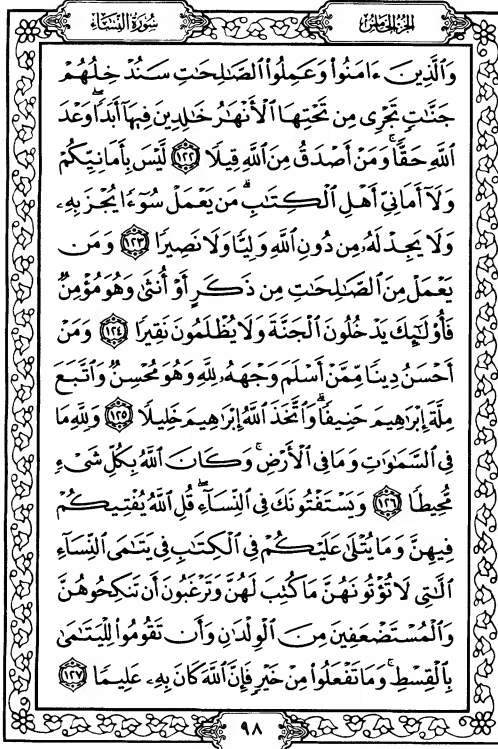 سُورَةُ النِّسَاءِ
الجُزْءُ الخَامِسُ
وَٱلَّذِينَ ءَامَنُوا۟ وَعَمِلُوا۟ ٱلصَّـٰلِحَـٰتِ سَنُدْخِلُهُمْ
جَنَّـٰتٍ تَجْرِى مِن تَحْتِهَا ٱلْأَنْهَـٰرُ خَـٰلِدِينَ فِيهَآ أَبَدًا ۖ وَعْدَ
ٱللَّهِ حَقًّا ۚ وَمَنْ أَصْدَقُ مِنَ ٱللَّهِ قِيلًا ﴿١٢٢﴾ لَّيْسَ بِأَمَانِيِّكُمْ
وَلَآ أَمَانِىِّ أَهْلِ ٱلْكِتَـٰبِ ۗ مَن يَعْمَلْ سُوٓءًا يُجْزَ بِهِۦ
وَلَا يَجِدْ لَهُۥ مِن دُونِ ٱللَّهِ وَلِيًّا وَلَا نَصِيرًا ﴿١٢٣﴾ وَمَن
يَعْمَلْ مِنَ ٱلصَّـٰلِحَـٰتِ مِن ذَكَرٍ أَوْ أُنثَىٰ وَهُوَ مُؤْمِنٌ
فَأُو۟لَـٰٓئِكَ يَدْخُلُونَ ٱلْجَنَّةَ وَلَا يُظْلَمُونَ نَقِيرًا ﴿١٢٤﴾ وَمَنْ
أَحْسَنُ دِينًا مِّمَّنْ أَسْلَمَ وَجْهَهُۥ لِلَّهِ وَهُوَ مُحْسِنٌ وَٱتَّبَعَ
مِلَّةَ إِبْرَٰهِيمَ حَنِيفًا ۗ وَٱتَّخَذَ ٱللَّهُ إِبْرَٰهِيمَ خَلِيلًا ﴿١٢٥﴾ وَلِلَّهِ مَا
فِى ٱلسَّمَـٰوَٰتِ وَمَا فِى ٱلْأَرْضِ ۚ وَكَانَ ٱللَّهُ بِكُلِّ شَىْءٍ
مُّحِيطًا ﴿١٢٦﴾ وَيَسْتَفْتُونَكَ فِى ٱلنِّسَآءِ ۖ قُلِ ٱللَّهُ يُفْتِيكُمْ
فِيهِنَّ وَمَا يُتْلَىٰ عَلَيْكُمْ فِى ٱلْكِتَـٰبِ فِى يَتَـٰمَى ٱلنِّسَآءِ
ٱلَّـٰتِى لَا تُؤْتُونَهُنَّ مَا كُتِبَ لَهُنَّ وَتَرْغَبُونَ أَن تَنكِحُوهُنَّ
وَٱلْمُسْتَضْعَفِينَ مِنَ ٱلْوِلْدَٰنِ وَأَن تَقُومُوا۟ لِلْيَتَـٰمَىٰ
بِٱلْقِسْطِ ۚ وَمَا تَفْعَلُوا۟ مِنْ خَيْرٍ فَإِنَّ ٱللَّهَ كَانَ بِهِۦ عَلِيمًا ﴿١٢٧﴾
٩٨